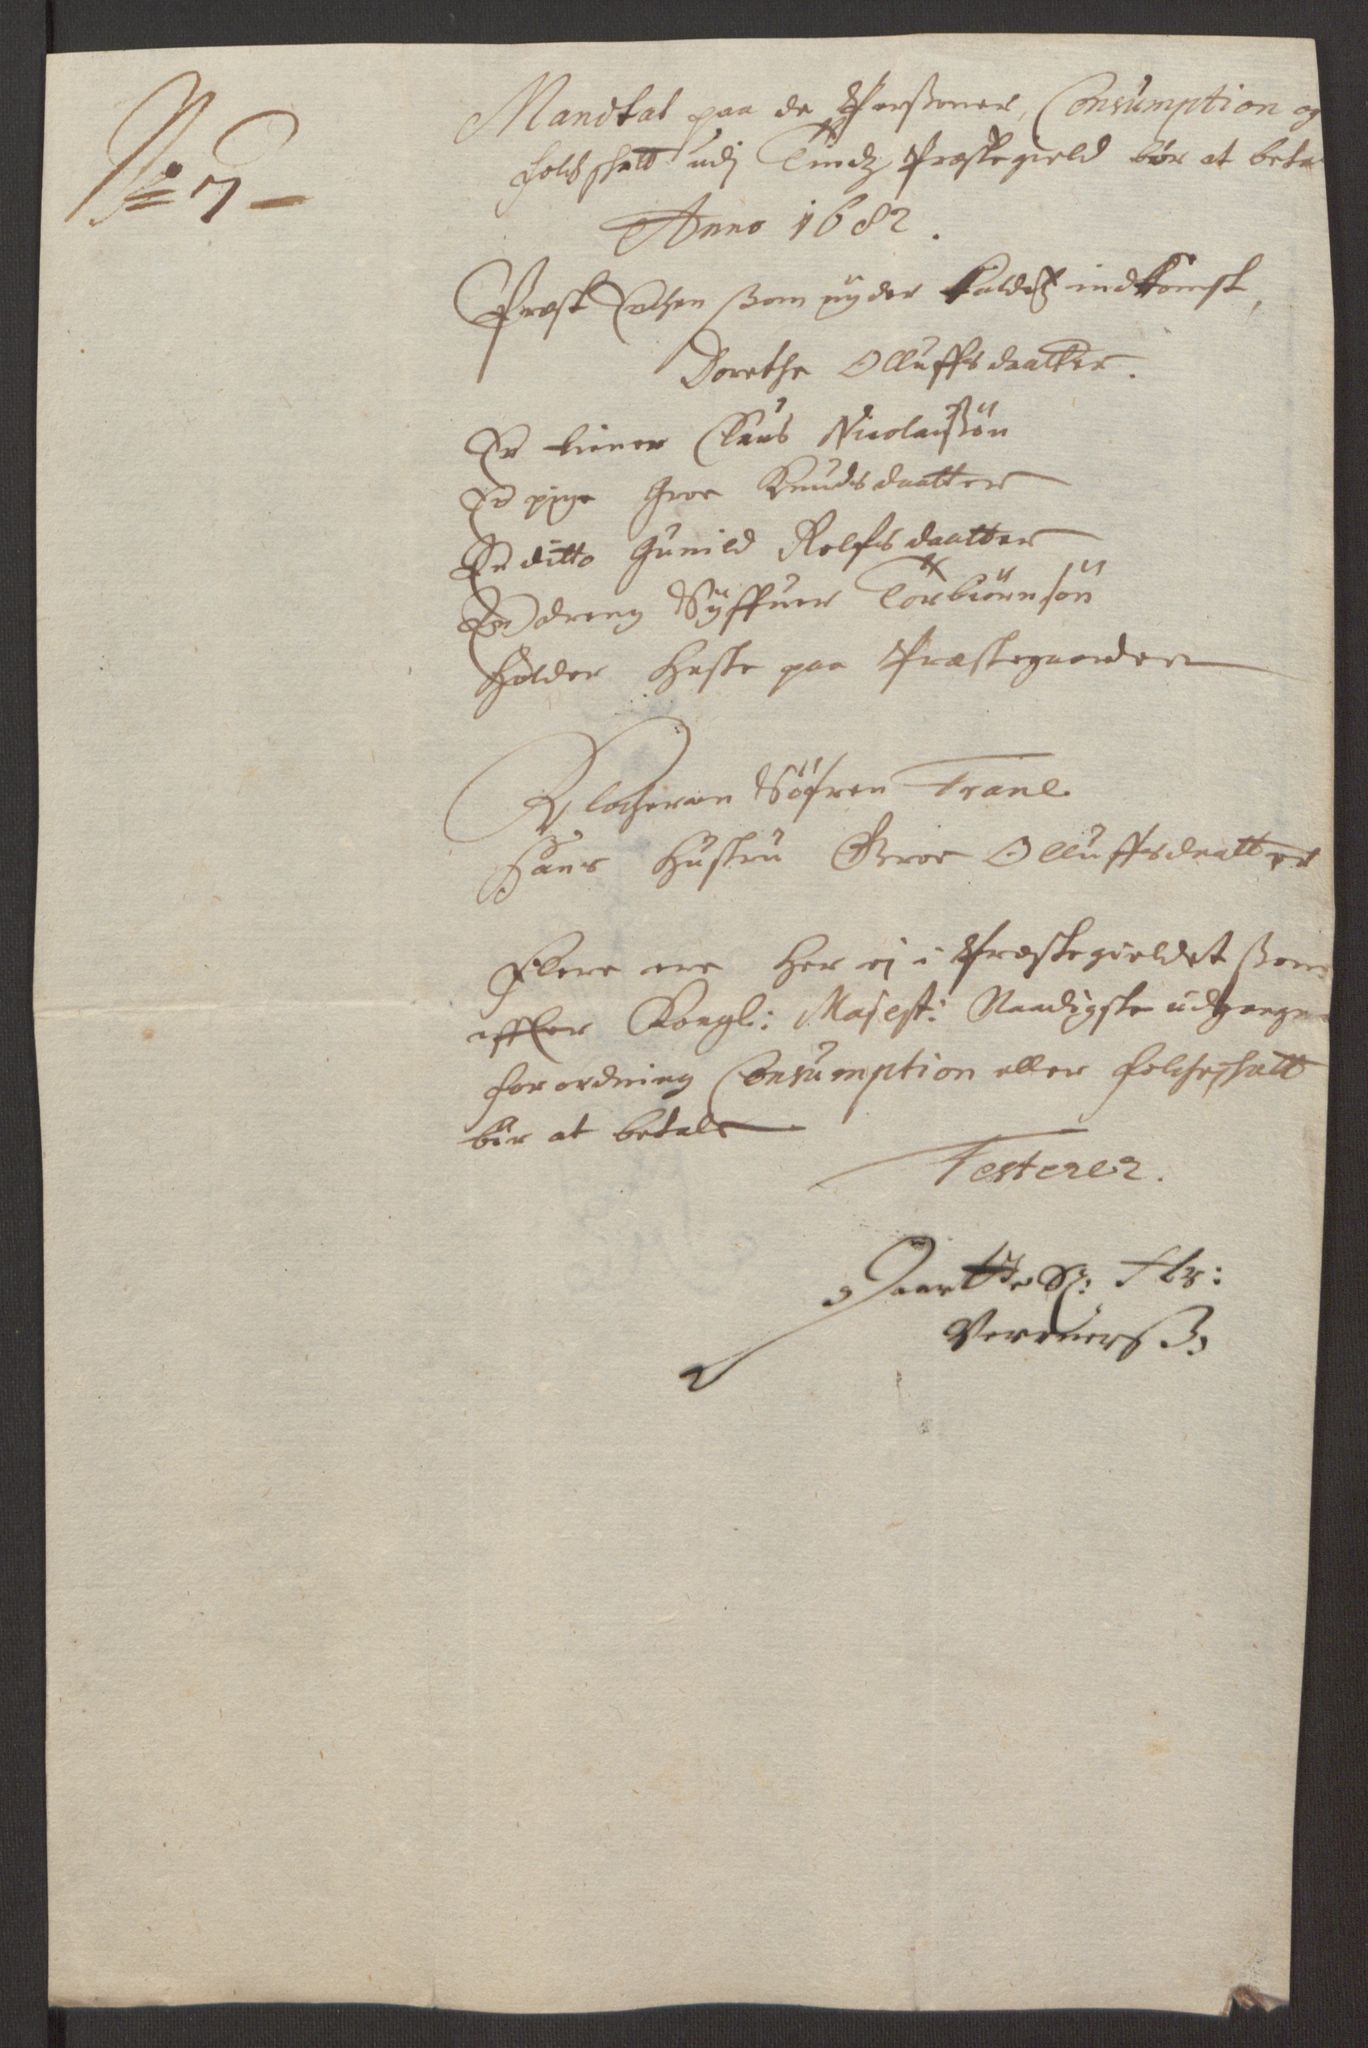 No 7
Mandtal paa de Persones, Consumption og
folcheskatt udj Tindz Præstegield bør at beta
Anno 1682.
Præst Enchen som nyder Kaldetz indkomst,
Dorethe Olluffsdaatter.
En tiener Claus Nicolaissøn
En pige Groe Knudsdaatter
En ditto Gunild Rolfsdaatter
En dreng Syffuer Torbiörnsön
Holder heste paa Præstegaarden
Klocheren Söfren Trane
Hans Hustru Groe Olluffsdaatter
Flere ere her ej i Præstegieldet som
effter Kongl: Majest: Naadigste udgangne
forordning Consumption eller folcheskatt
bör at betale
Testerer.
Dorethe Sl: